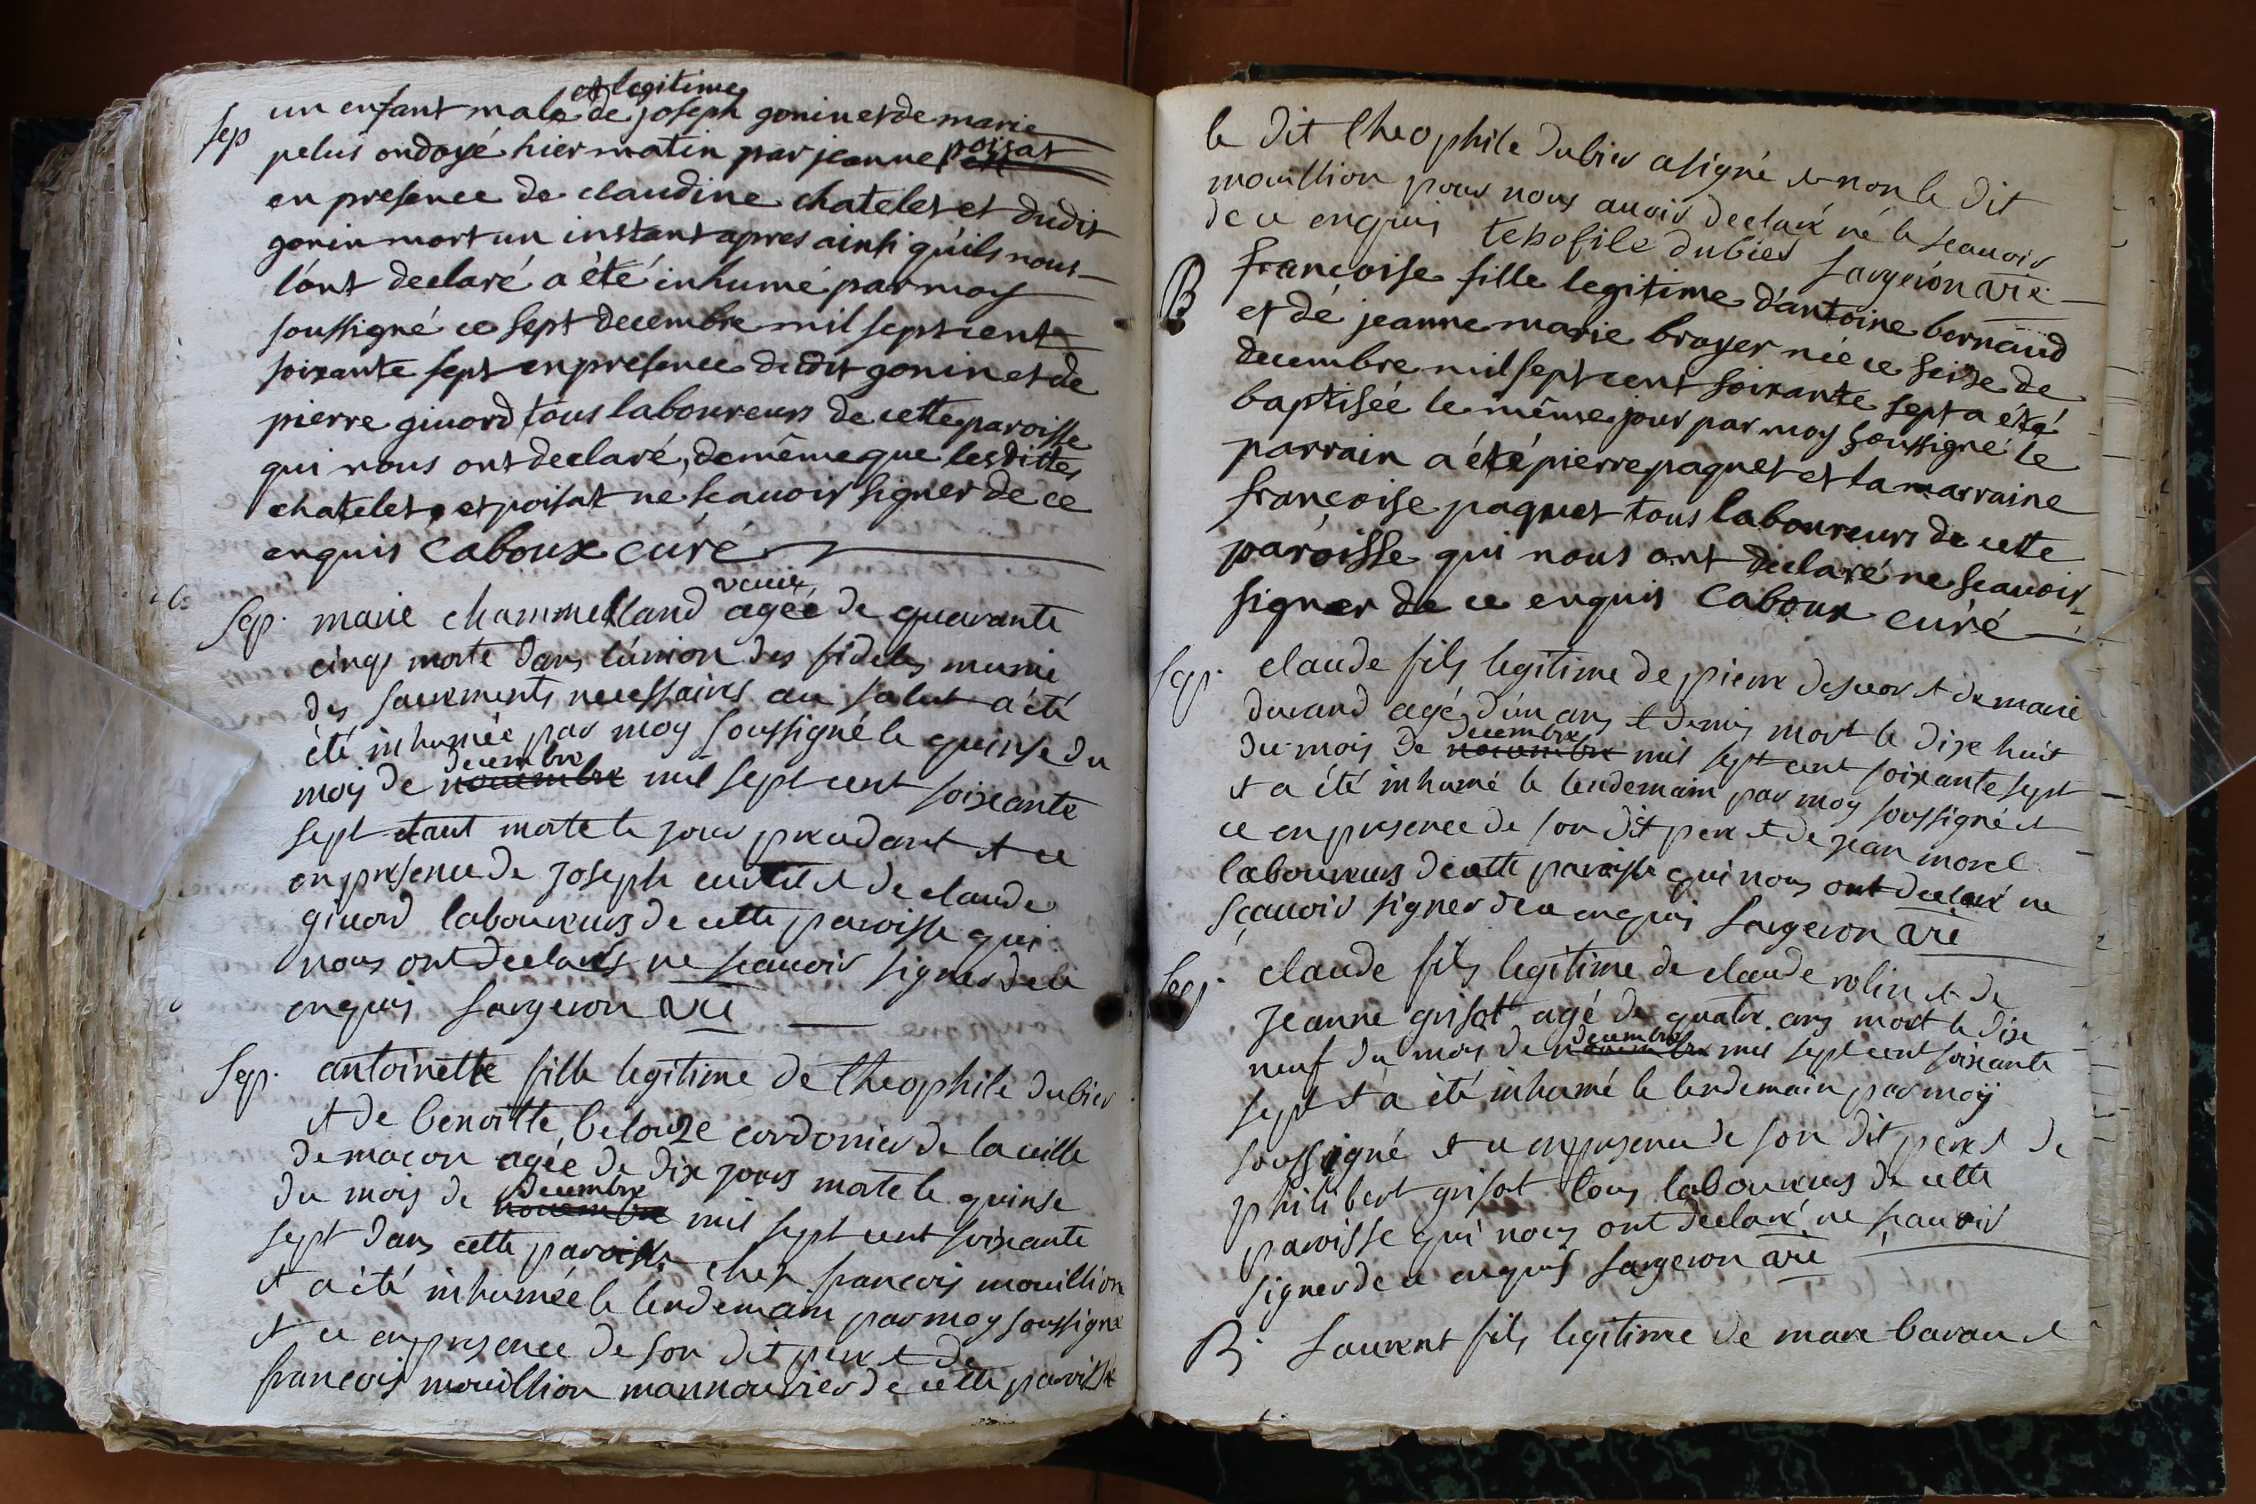 Sep un enfant male et legitime de joseph gonin et de marie
pelus ondoyé hier matin par jeanne poisat
en presence de claudine chatelet et dudit
gonin mort un instant apres ainsi qu'ils nous
l'ont declaré a été inhumé par moy
soussigné ce sept decembre mil sept cent
soixante sept en presence dudit gonin et de
pierre giuord tous laboureurs de cette paroisse
qui nous ont declaré, de même que les dittes
chatelet, et poisat ne scauoir signer de ce
enquis Caboux curé
Sep. marie chammelland veuue agée de quarante
cinq morte dans l'union des fideles munie
des sacrements necessaires au salut a été
été inhumée par moy soussigné le quinse du
moy de nouembre decembre mil sept cent soixante
sept etant morte le jour precedant et ce
en presence de joseph curtil et de claude
giuord laboureurs de cette paroisse qui
nous ont declarés ne scauoir signer de ce
enquis Sargeron vic
Sep. antoinette fille legitime de theophile dubier
et de benoitte belouze cordonier de la uille
de macon agée de dix jours morte le quinse
du mois de nouembre decembre mil sept cent soixante
sept dans cette paroisse chez francois mouillion
et a été inhumée le lendemain par moy soussigné
et ce en presence de son dit pere et de
francois mouillion mannouurier de cette paroisse
le dit theophile dubier a signé et non le dit
mouillion pour nous auoir declaré né le scauoir
de ce enquis tehofile dubier Sargeron vic
B francoise fille legitime d'antoine bernaud
et dé jeanne marie broyer née ce seize de
decembre mil sept cent soixante sept a été
baptisée le même jour par moy soussigné le
parrain a été pierre paquet et la marraine
francoise paquet tous laboureurs de cette
paroisse qui nous ont declaré ne scauoir
signer de ce enquis Caboux curé
Sep. claude fils legitime de pierre descor et de marie
durand agé d'un ans et demis mort le dixe huit
du mois de nouembre decembre mil sept cent soixante sept
et a été inhumé le lendemain par moy soussigné et
ce en presence de son dit pere et de jean morel
laboureurs de cette paroisse qui nous ont declaré ne
sçauoir signer de ce enquis Sargeron vic
Sep. claude fils legitime de claude rolin et de
jeanne grisot agé de quatre ans mort le dixe
neuf du mois de nouembre decembre mil sept cent soixante
sept et a été inhumé le lendemain par moy
soussigné et ce en presence de son dit pere et de
philibert grisot tous laboureurs de cette
paroisse qui nous ont declaré ne sçauoir
signer de ce enquis Sargeron vic
B. Laurent fils legitime de marc baraud et